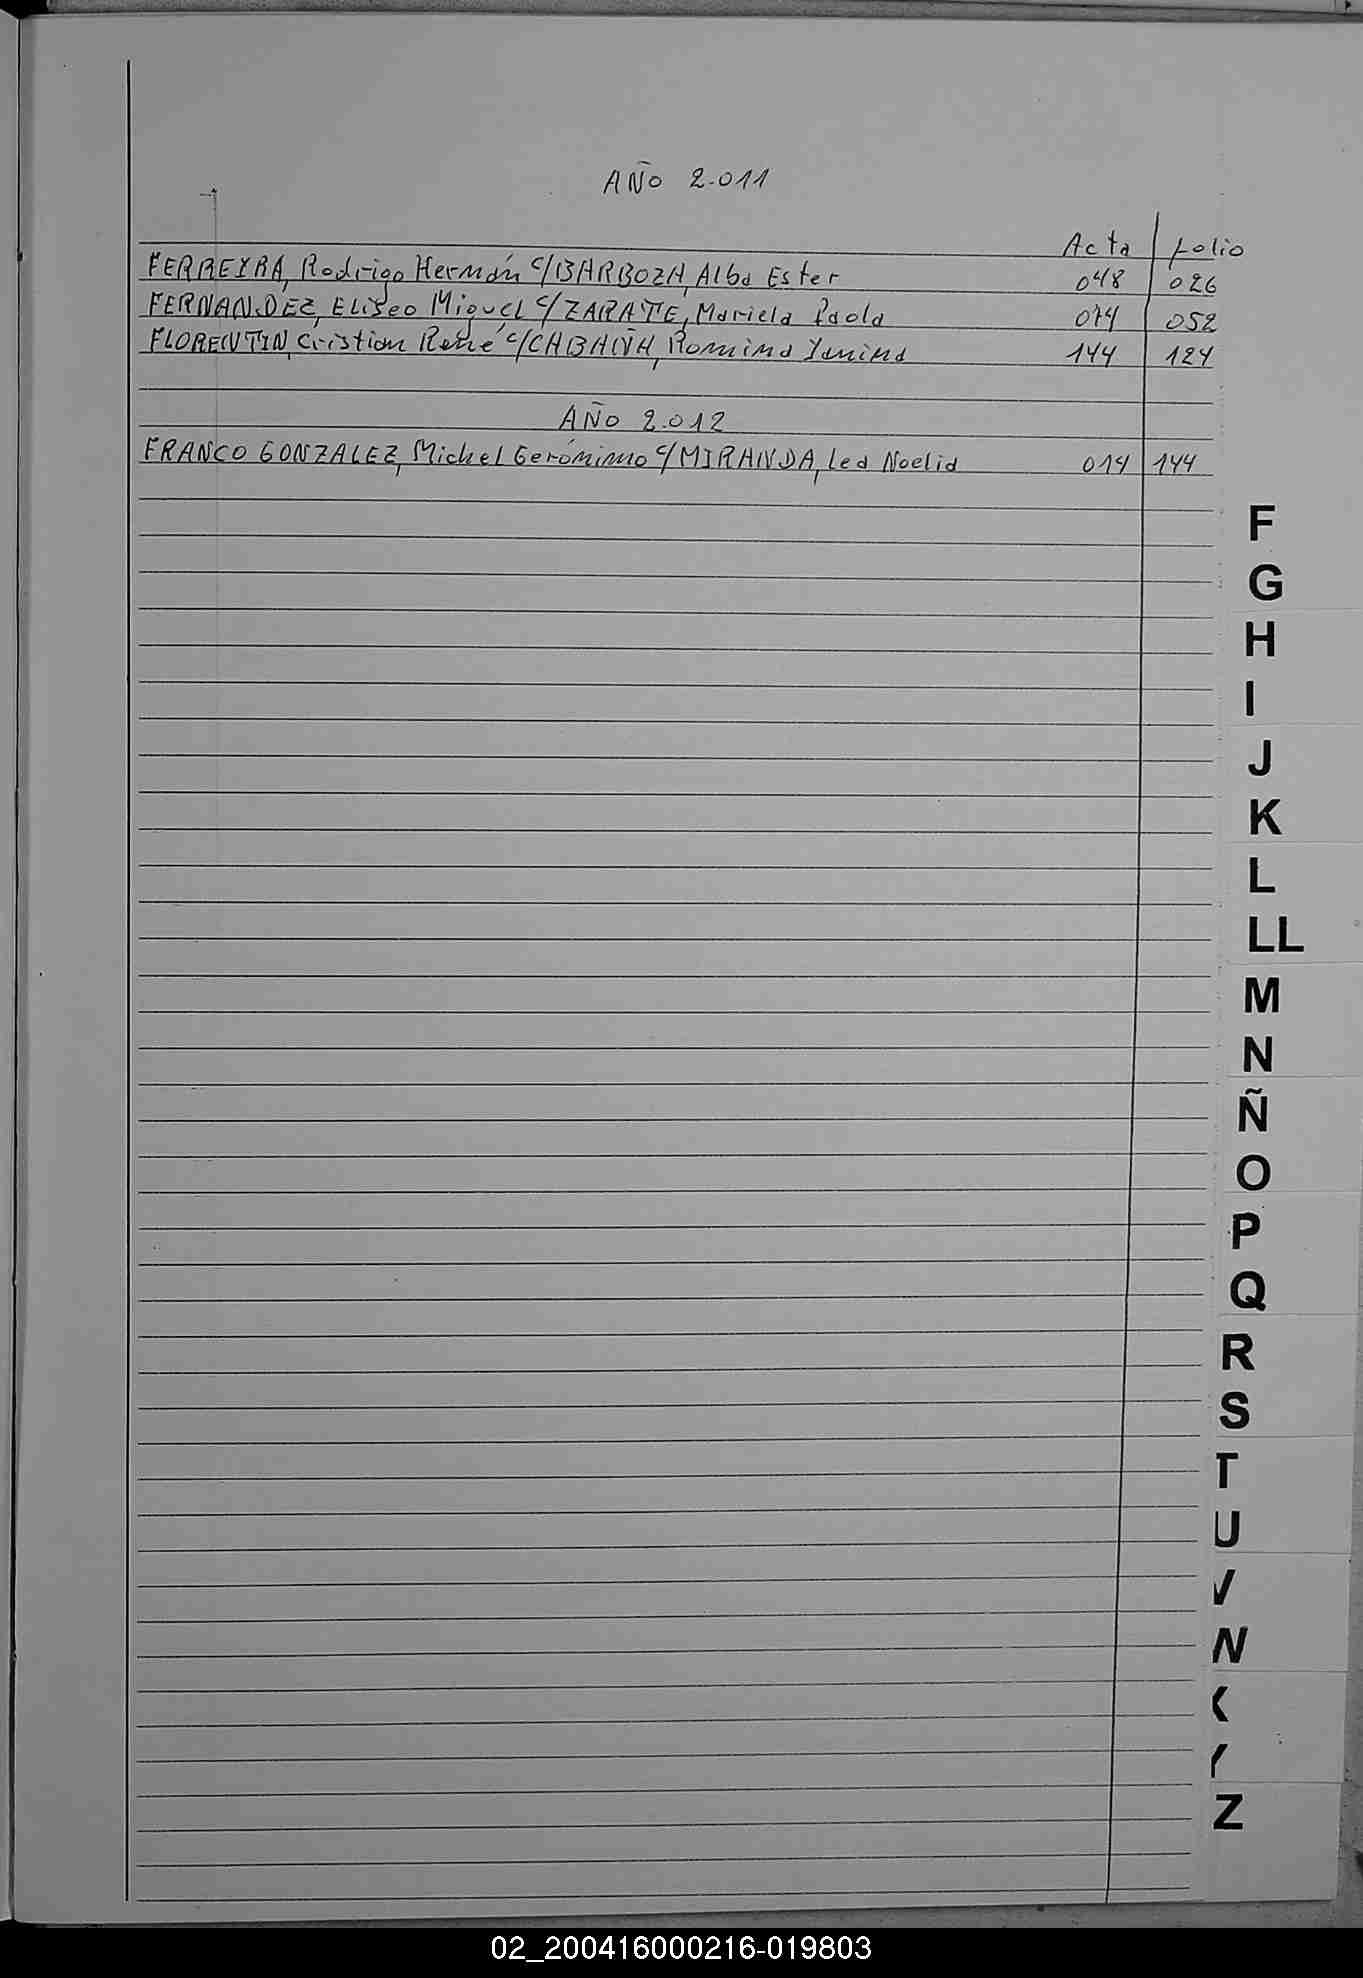 AÑO 2.011
Acta folio
FERREYRA, Rodrigo Hernán c/BARBOZA, Alba Ester 048 026
FERNANDEZ, Eliseo Miguel c/ZARATE, Mariela Paola 074 052
FLORENTIN, Cristian René c/CABAÑA, Romina Yanina 144 124
AÑO 2.012
FRANCO GONZALEZ, Michel Gerónimo c/MIRANDA, Lea Noelia 014 144
F
G
H
I
J
K
L
LL
M
N
Ñ
O
P
Q
R
S
T
U
V
W
X
Y
Z
02_200416000216-019803